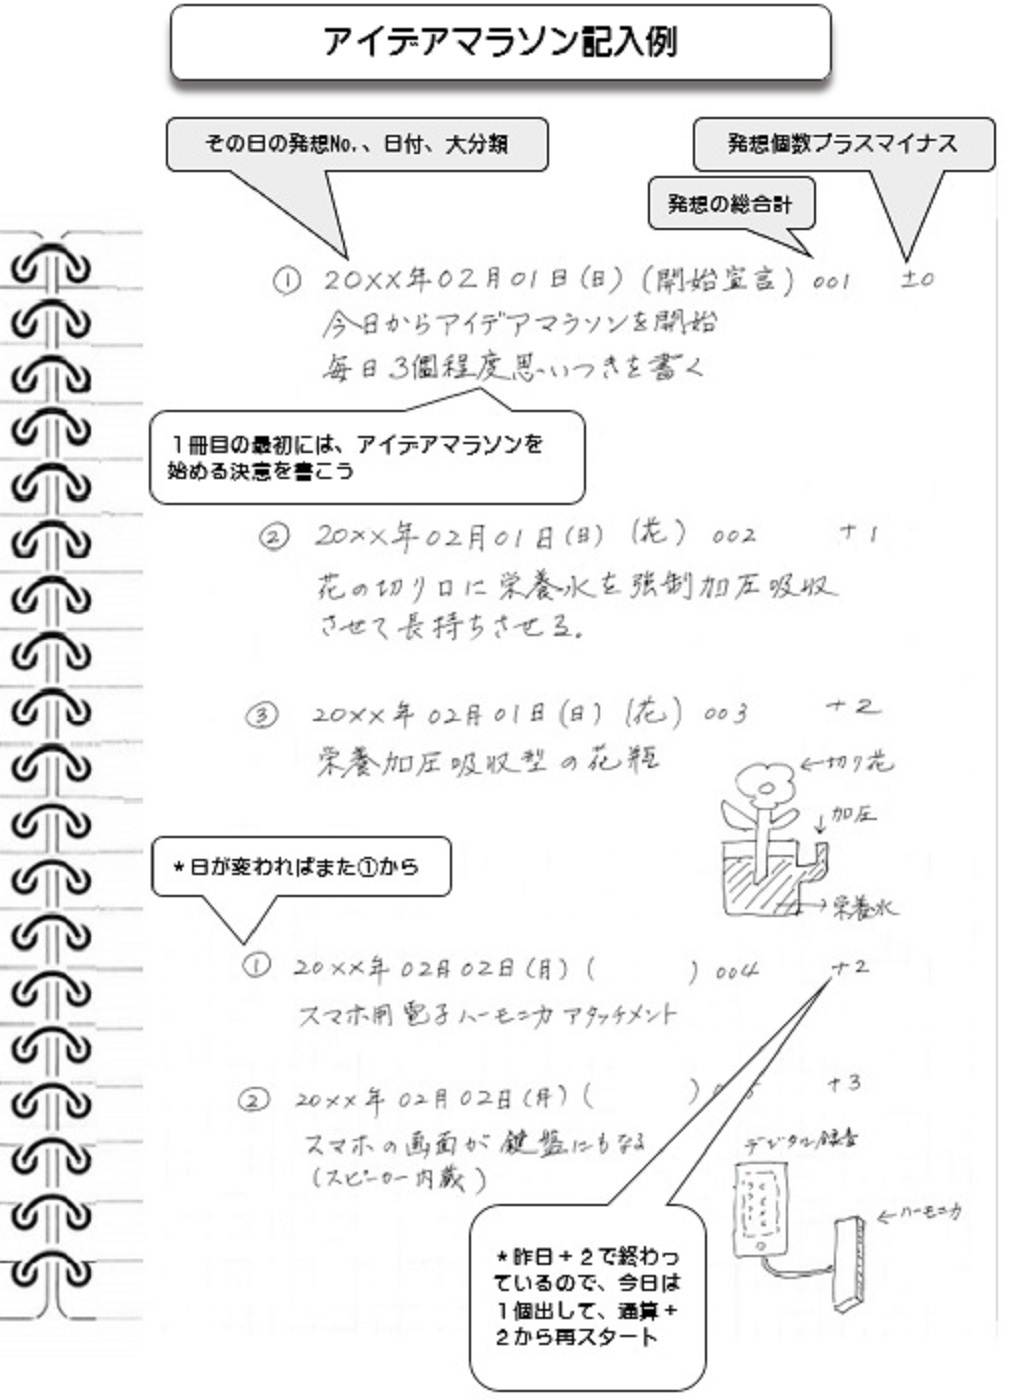 アイデアマラソン記入例
その日の発想No.、日付、大分類
発想個数プラスマイナス
発想の総合計
① 20××年02月01日(日)(開始宣言) 001 ±0
今日からアイデアマラソンを開始
毎日3個程度思いつきを書く
1冊目の最初には、アイデアマラソンを
始める決意を書こう
② 20××年02月01日(日) (花) 002 +1
花の切り口に栄養水を強制加圧吸収
させて長持ちさせる。
③ 20××年02月01日(日) (花) 003 +2
栄養加圧吸収型の花瓶
←切り花
加圧
→栄養水
*日が変わればまた①から
① 20××年02月02日(月) ( ) 004 +2
スマホ用電子ハーモニカアタッチメント
② 20××年02月02日(月) ( ) +3
スマホの画面が鍵盤にもなる
(スピーカー内蔵)
デジタル録音
←ハーモニカ
*昨日+2で終わっ
ているので、今日は
1個出して、通算+
2から再スタート